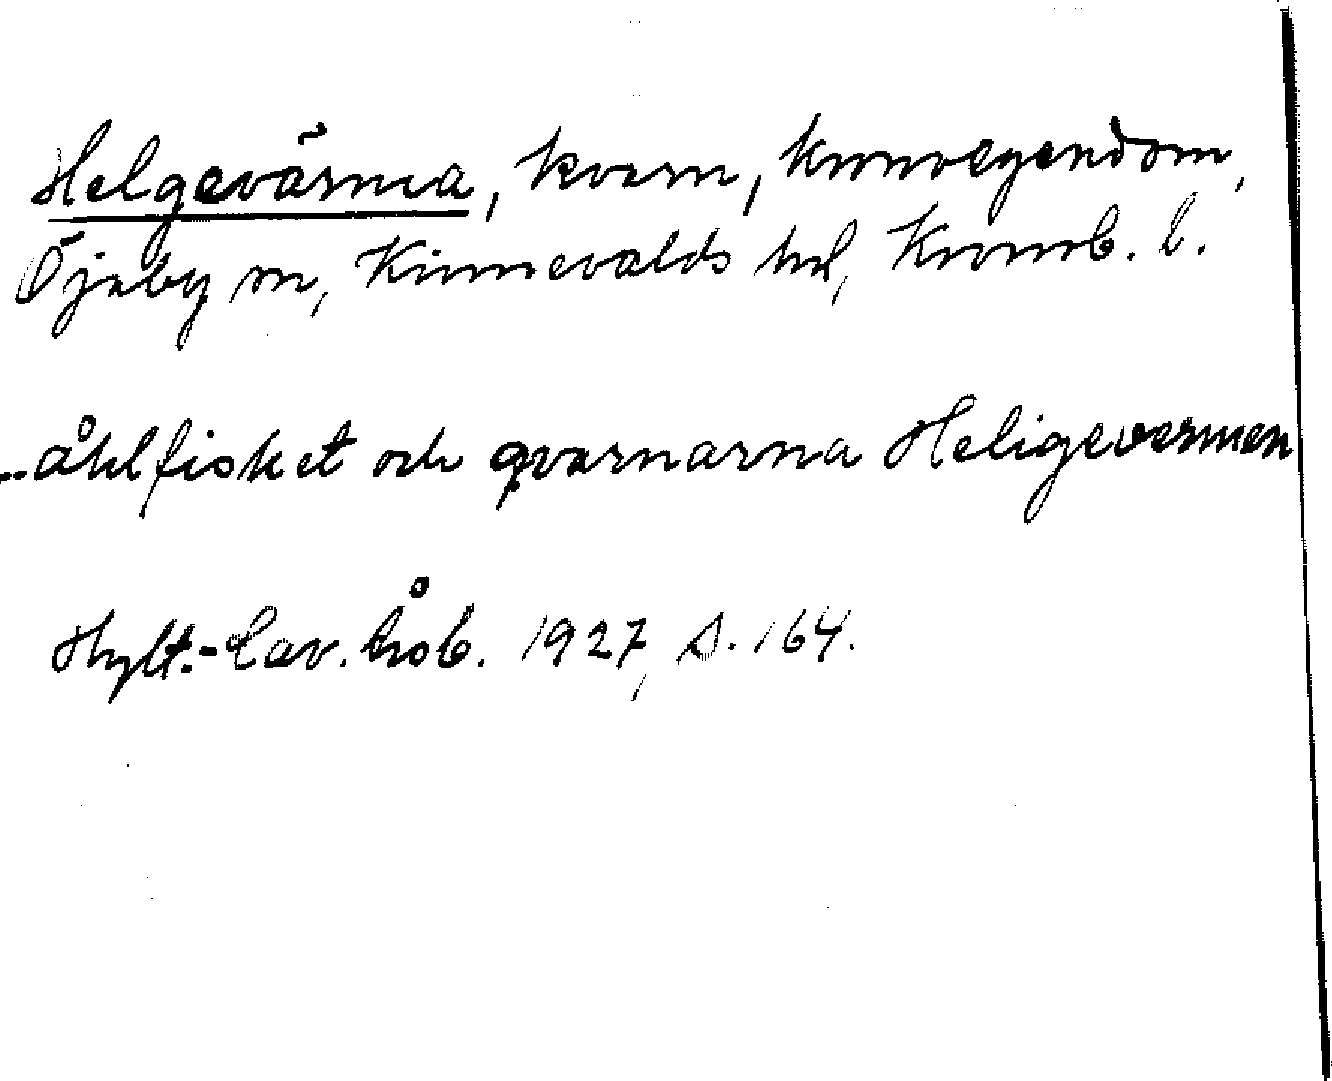 Helgevärma, kvarn, kronoegendom,
Öjaby sn, Kinnevalds hd, Kronob. l.
..åhlfisket och qvarnarna Heligevermen
Hylt.-Cav. håb. 1927, s. 164.